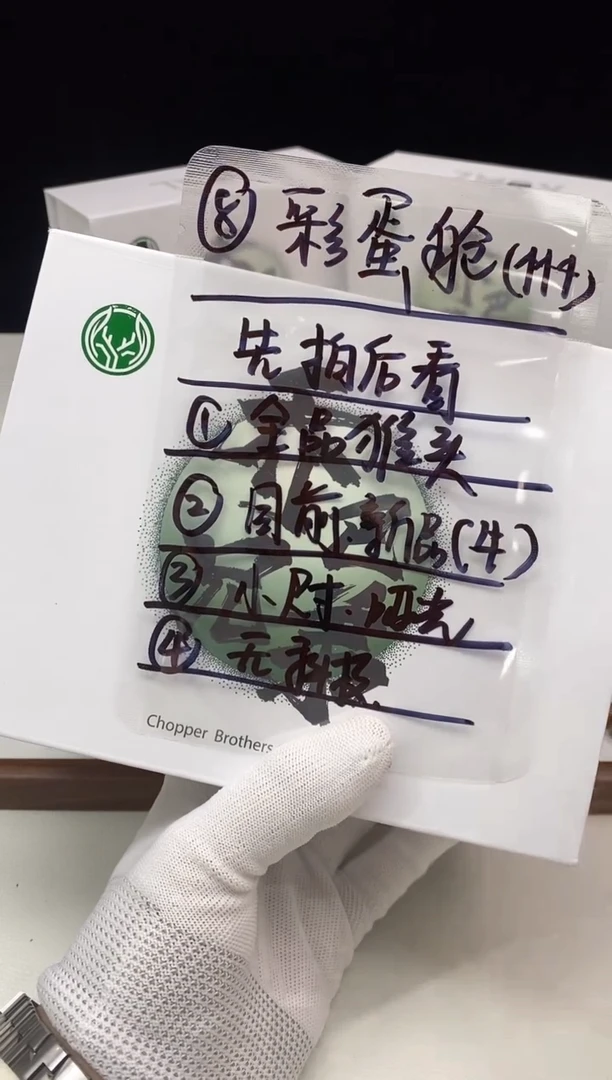 ⑧ 彩蛋舱(114)
先拍后看
① 全品猴头
② 目前.新品(4)
③ 小尺寸.
④ 无科技
Chopper Brothers